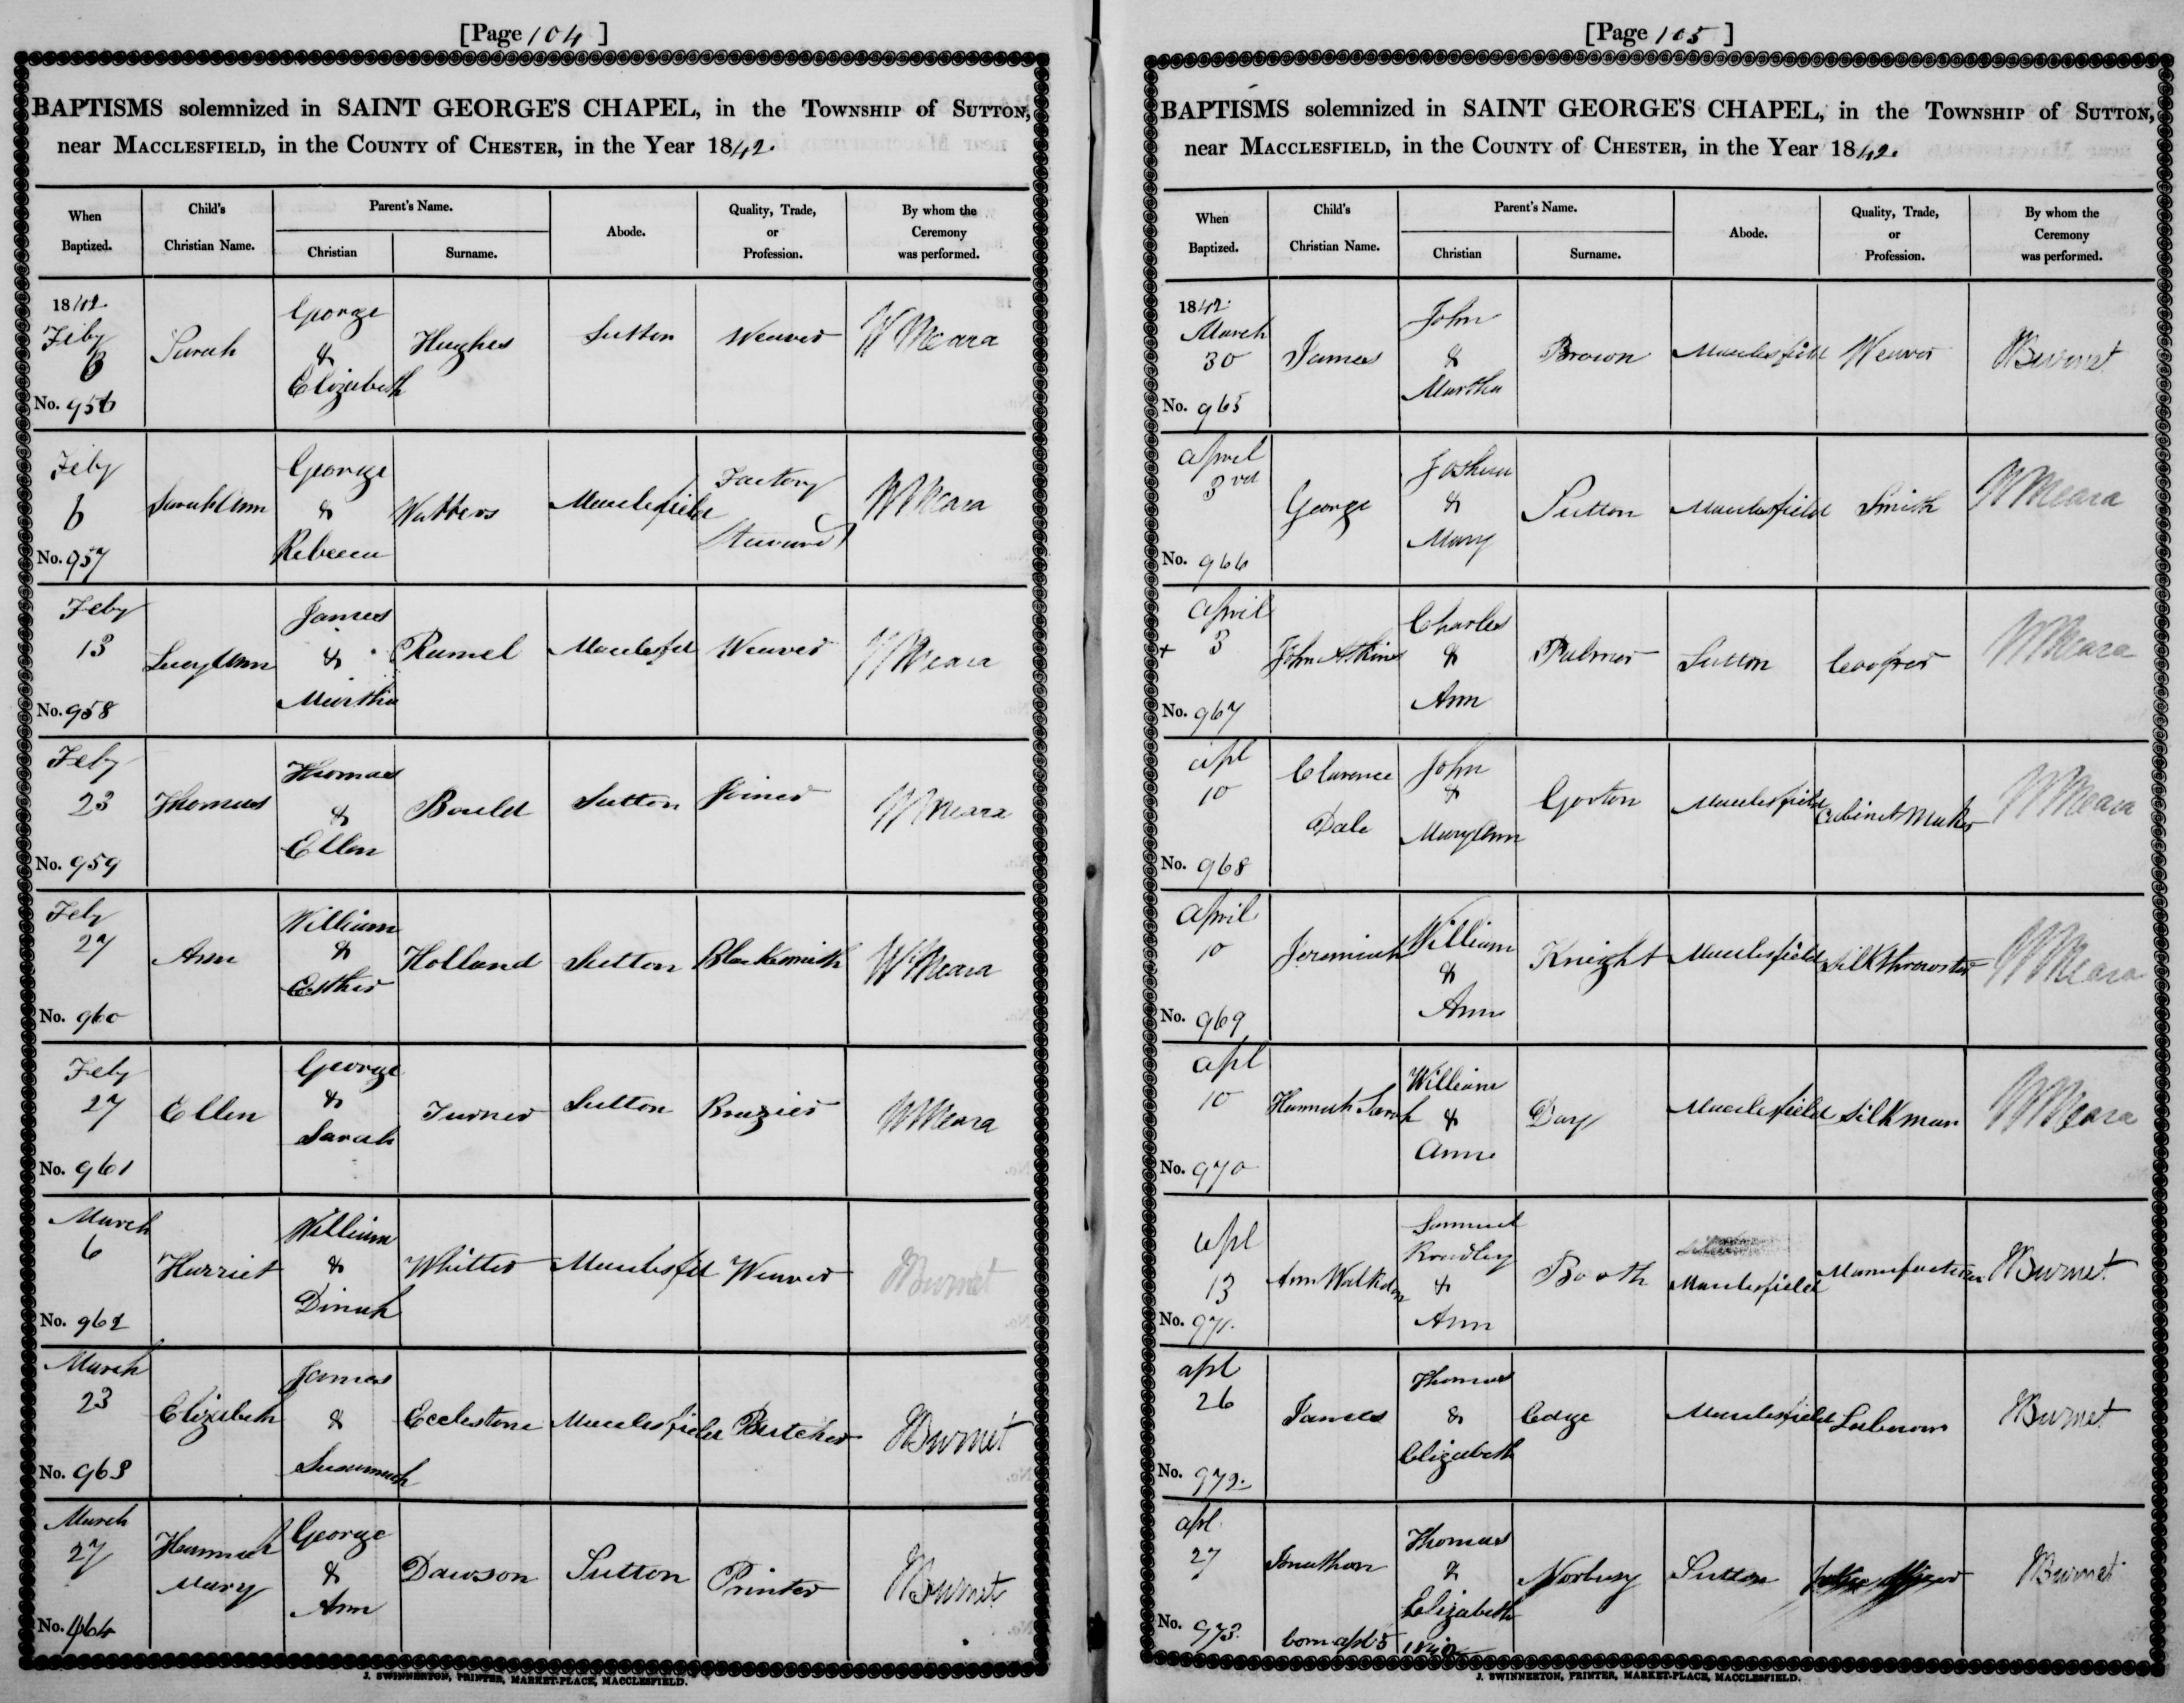 [Page 104 ]
BAPTISMS solemnized in SAINT GEORGE'S CHAPEL, in the TOWNSHIP of SUTTON,
near MACCLESFIELD, in the COUNTY of CHESTER, in the Year 1842.
When Baptized.
Child's Christian Name.
Parent's Name.
Christian
Surname.
Abode.
Quality, Trade, or Profession.
By whom the Ceremony was performed.
1842. Feby 6 No. 956 Sarah George & Elizabeth Hughes Sutton Weaver W Meara
Feby 6 No. 957 Sarah Ann George & Rebecca Watters Macclesfield Factory Steward W Meara
Feby 13 No. 958 Lucy Ann James & Martha Ramel Macclesfd Weaver W Meara
Feby 23 No. 959 Thomas Thomas & Ellen Bould Sutton Joiner W Meara
Feby 27 No. 960 Ann William & Esther Holland Sutton Blacksmith W Meara
Feby 27 No. 961 Ellen George & Sarah Turner Sutton Brazier W Meara
March 6 No. 962 Harriet William & Dinah Whitter Macclesfd Weaver Burnet
March 23 No. 963 Elizabeth James & Susannah Ecclestone Macclesfield Butcher Burnet
March 27 No. 964 Hannah Mary George & Ann Dawson Sutton Printer Burnet
J. SWINNERTON, PRINTER, MARKET-PLACE, MACCLESFIELD.
[Page 105 ]
BAPTISMS solemnized in SAINT GEORGE'S CHAPEL, in the TOWNSHIP of SUTTON,
near MACCLESFIELD, in the COUNTY of CHESTER, in the Year 1842.
When Baptized.
Child's Christian Name.
Parent's Name.
Christian
Surname.
Abode.
Quality, Trade, or Profession.
By whom the Ceremony was performed.
1842. March 30 No. 965 James John & Martha Brown Macclesfield Weaver Burnet
April 3rd No. 966 George Joshua & Mary Sutton Macclesfield Smith W Meara
+ April 3 No. 967 John Askins Charles & Ann Palmer Sutton Cooper W Meara
Apl 10 No. 968 Clarence Dale John & Mary Ann Gorton Macclesfield Cabinet Maker W Meara
April 10 No. 969 Jeremiah William & Ann Knight Macclesfield Silk throwster W Meara
Apl 10 No. 970 Hannah Sarah William & Ann Day Macclesfield Silkman W Meara
Apl 13 No. 971. Ann Walkdon Samuel & Ann Booth Macclesfield Manufacturer Burnet
Apl 26 No. 972. James Thomas & Elizabeth Edge Macclesfield Labourer Burnet
Apl. 27 No. 973. Jonathan Thomas & Elizabeth Norbury Sutton Burnet
born apl 5 1842
J. SWINNERTON, PRINTER, MARKET-PLACE, MACCLESFIELD.